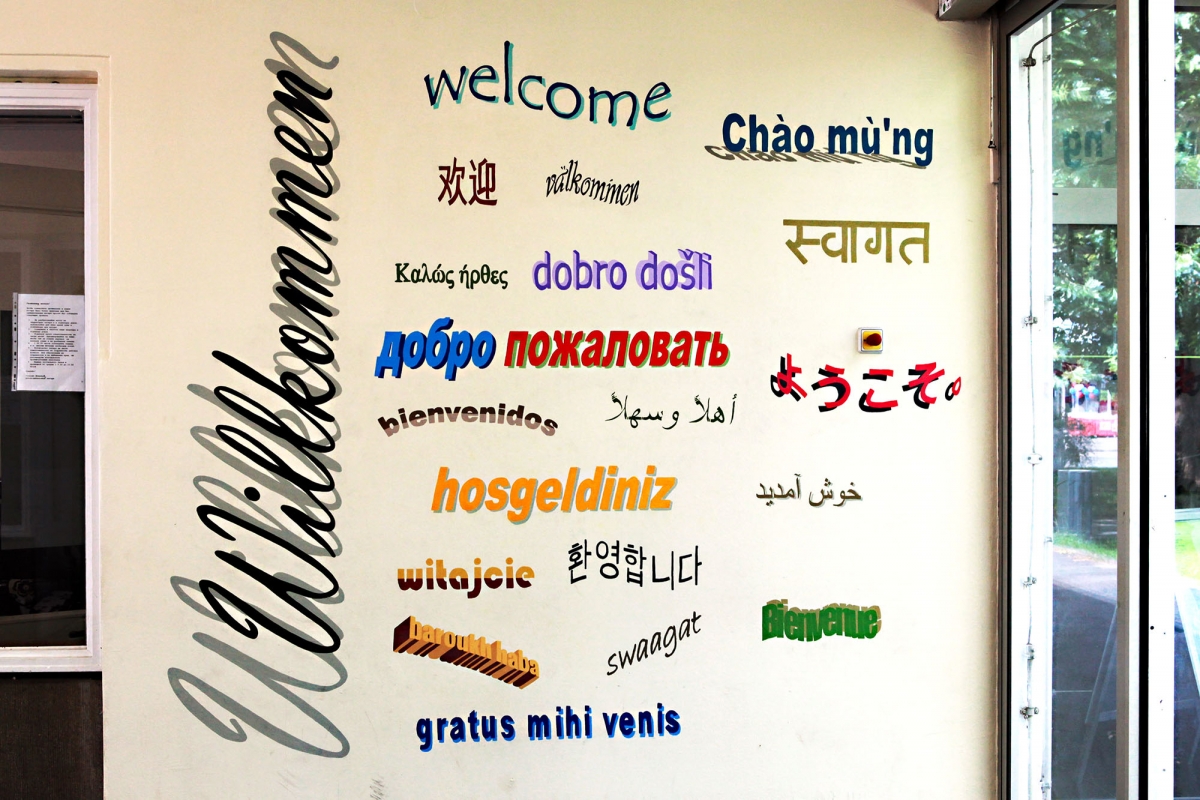 Willkommen
welcome
Chào mù'ng
欢迎
välkommen
स्वागत
Καλώς ήρθες
dobro došli
добро пожаловать
ようこそ。
bienvenidos
أهلاً وسهلاً
hosgeldiniz
خوش آمدید
witajcie
환영합니다
baroukh haba
swaagat
Bienvenue
gratus mihi venis